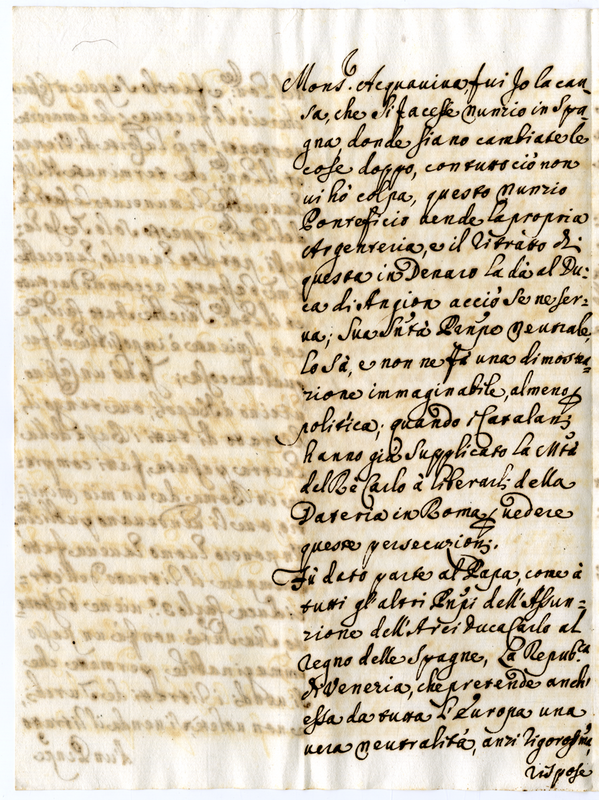 Mons.r Acquaviva, fui Jo la cau-
sa, che si facesse Nunzio in Spa-
gna, donde siano cambiate le
cose doppo, con tutto ciò non
ui hò colpa, questo Nunzio
Ponteficio uende la propria
Argenteria, e il ritràto di
questa in Denaro la dà al Du-
ca di Angiòn acciò se ne ser-
ua; Sua Sntà Prnpe Neutrale,
lo sà, e non ne fà una dimostra-
zione immaginabile, almeno
politica; quando i Catalani
hanno già supplicato la Mtà
del Rè Carlo à liberarli della
Dateria in Roma, uedere
queste persecuzioni.
Fù dato parte al Papa, come à
tutti gl'altri Pnpi dell'Assun-
zione dell'Arciduca Carlo al
regno delle Spagne, La Repub.ca
di Venezia, che pretende anch'
essa da tutta l'Europa una
uera neutralità, anzi rigorosma,
rispose